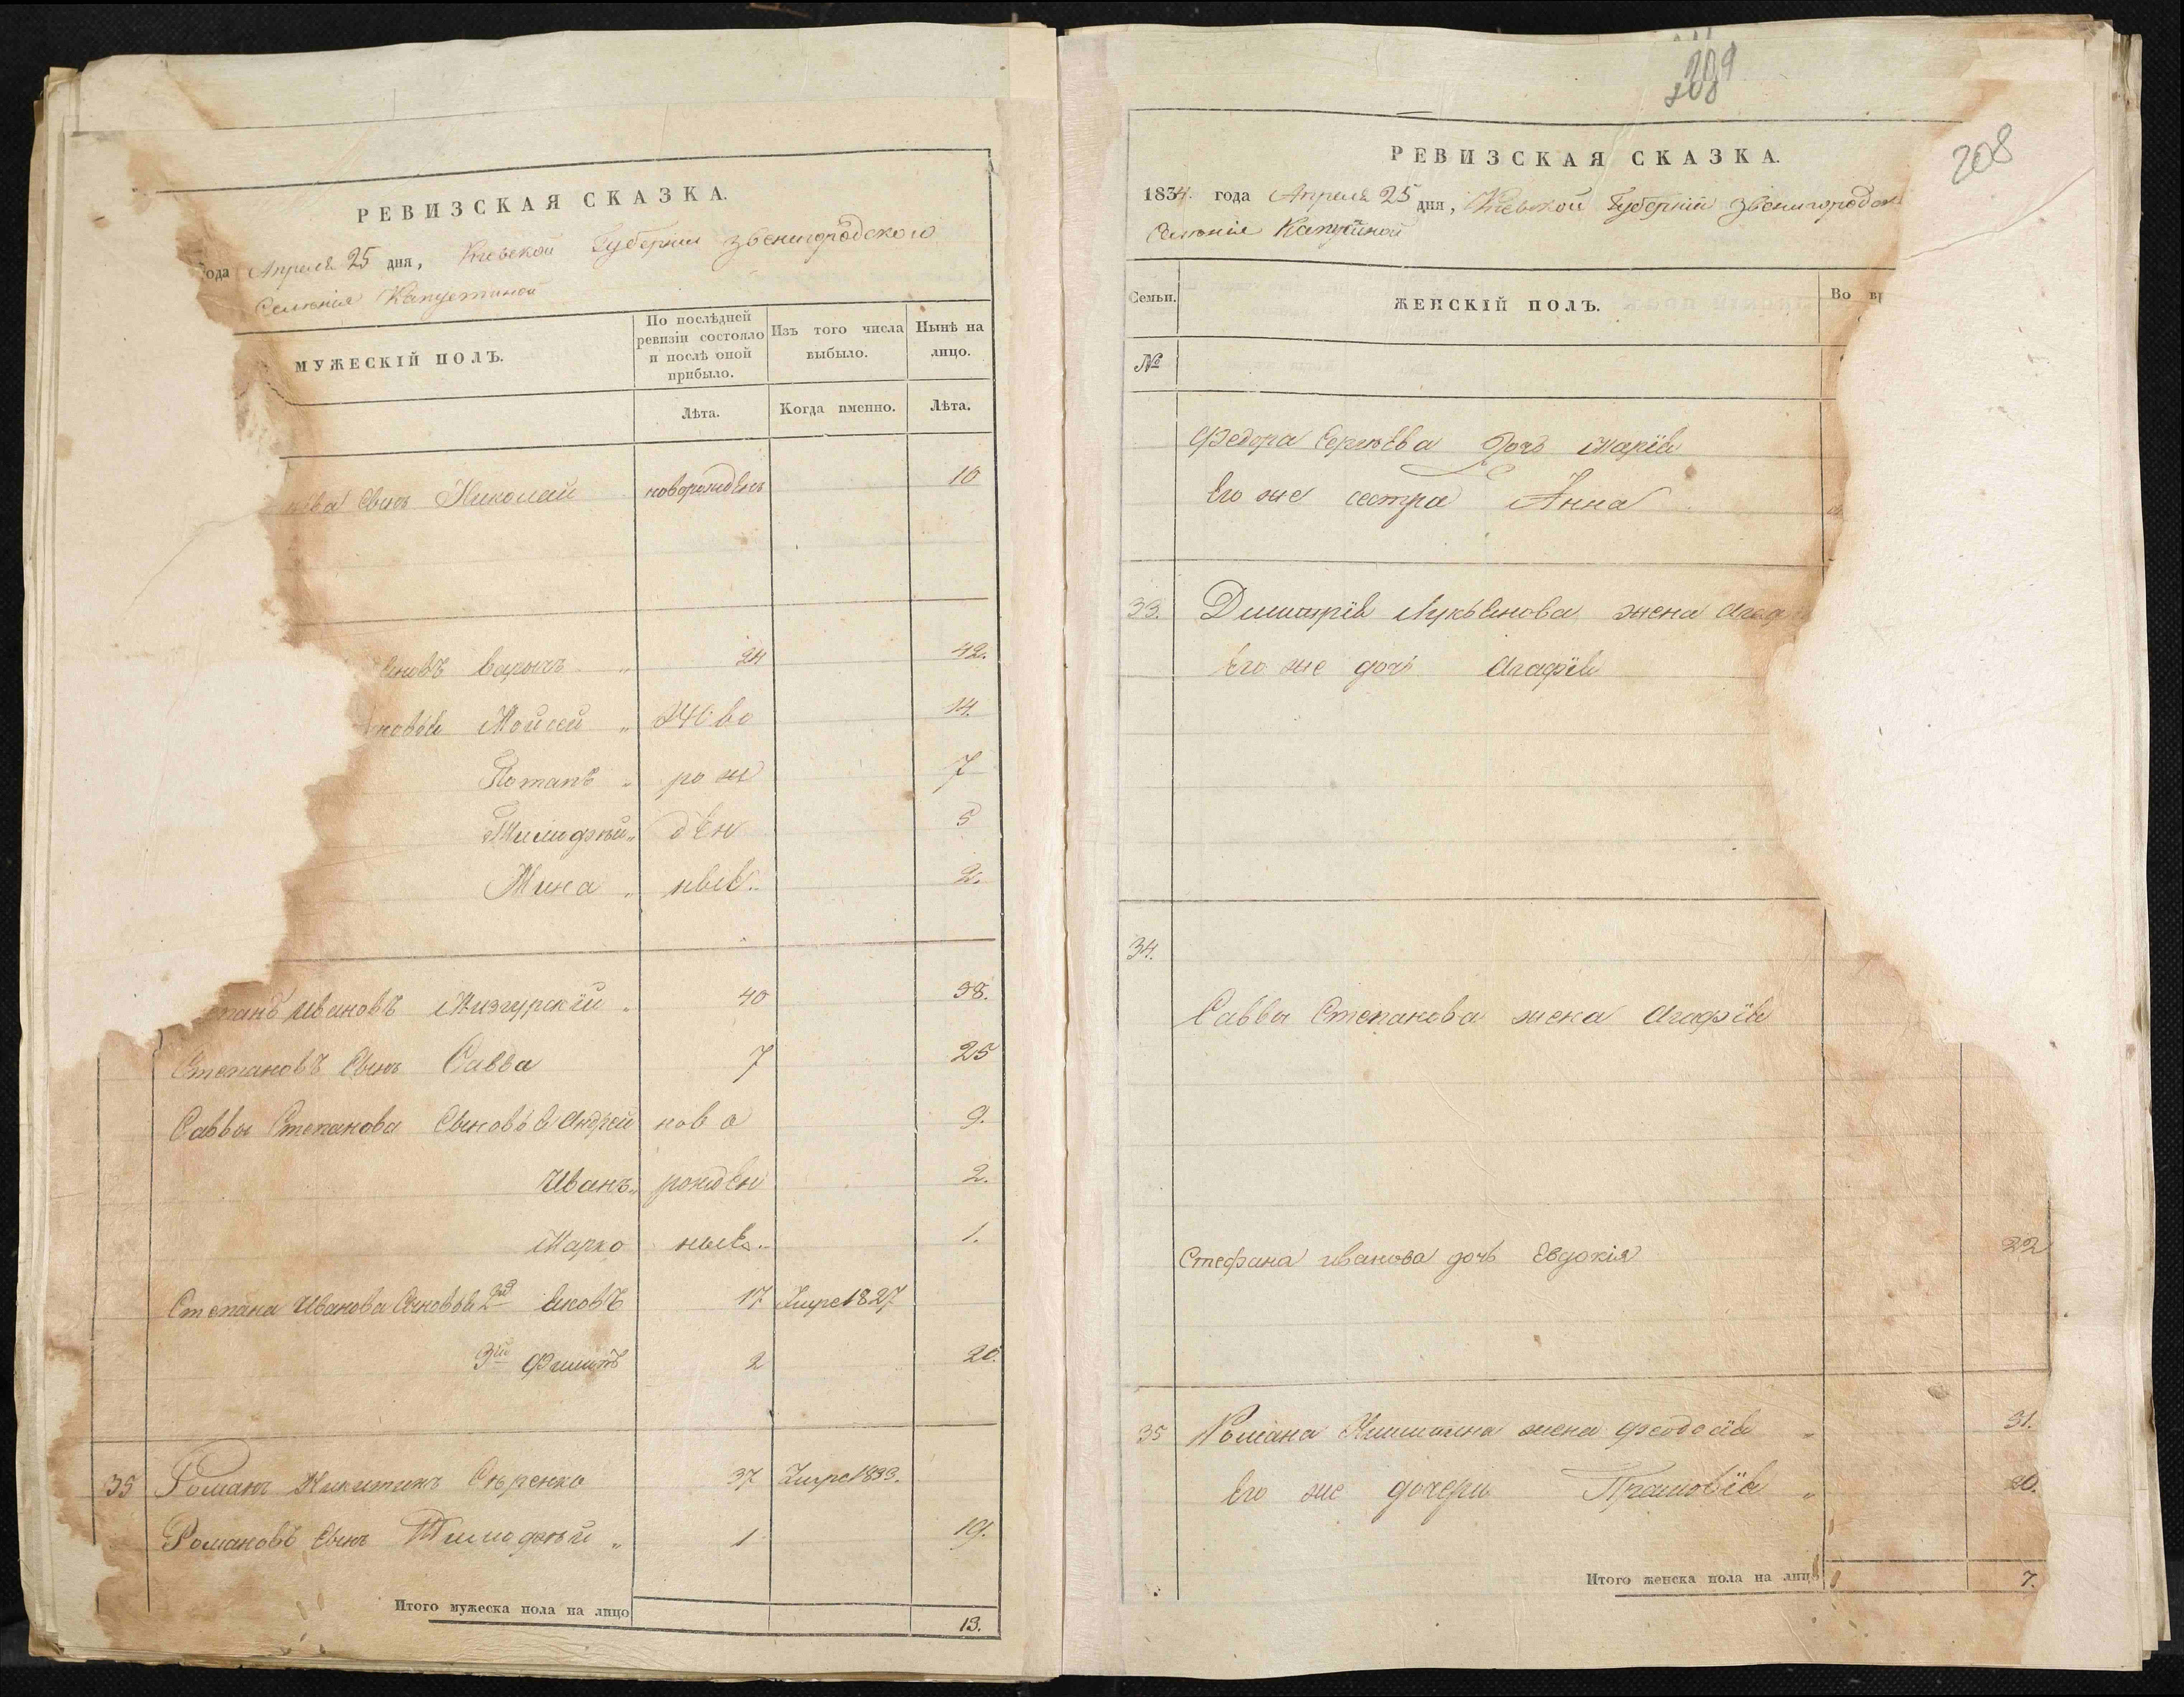 РЕВИЗСКАЯ СКАЗКА.
ода Апреля 25 дня, Киевской Губернии Звенигородского
Селения Капустиной
МУЖЕСКІЙ ПОЛЪ.
По послѣдней ревизіи состояло и послѣ оной прибыло.
Изъ того числа выбыло.
Нынѣ на лицо.
Лѣта.
Когда именно.
Лѣта.
Сынъ Николай новорожденъ 10
24 42.
Мойсей ново 14.
Потапъ рож 7
Тимофей ден 5
Мина ныя. 2.
Ивановъ 40 58.
Степановъ Сынъ Савва 7 25
Саввы Степанова Сыновья Андрей ново 9.
Иванъ рожден 2.
Марко ныя. 1.
Степана Иванова Сыновья 2й Яковъ 17 Умре 1827
3й Филипъ 2 20.
35 Романъ Никитинъ 37 Умре 1833.
Романовъ Сынъ Тимофей 1 19.
Итого мужеска пола на лицо 13.
209
208
208
РЕВИЗСКАЯ СКАЗКА.
1834. года Апреля 25 дня, Киевской Губернии Звенигородск
Селения
Семьи.
ЖЕНСКІЙ ПОЛЪ.
Во вр
№
Федора Сергѣева дочь Марія
Его же сестра Анна
33. Димитрія Лукьянова жена Агаф
Его же дочь Агафія
34.
Саввы Степанова жена Агафія
Стефана иванова дочь Евдокія 22
35 Романа Никитина жена Феодосія 31.
Его же дочери Прасковія 20.
Итого женска пола на лицо 7.